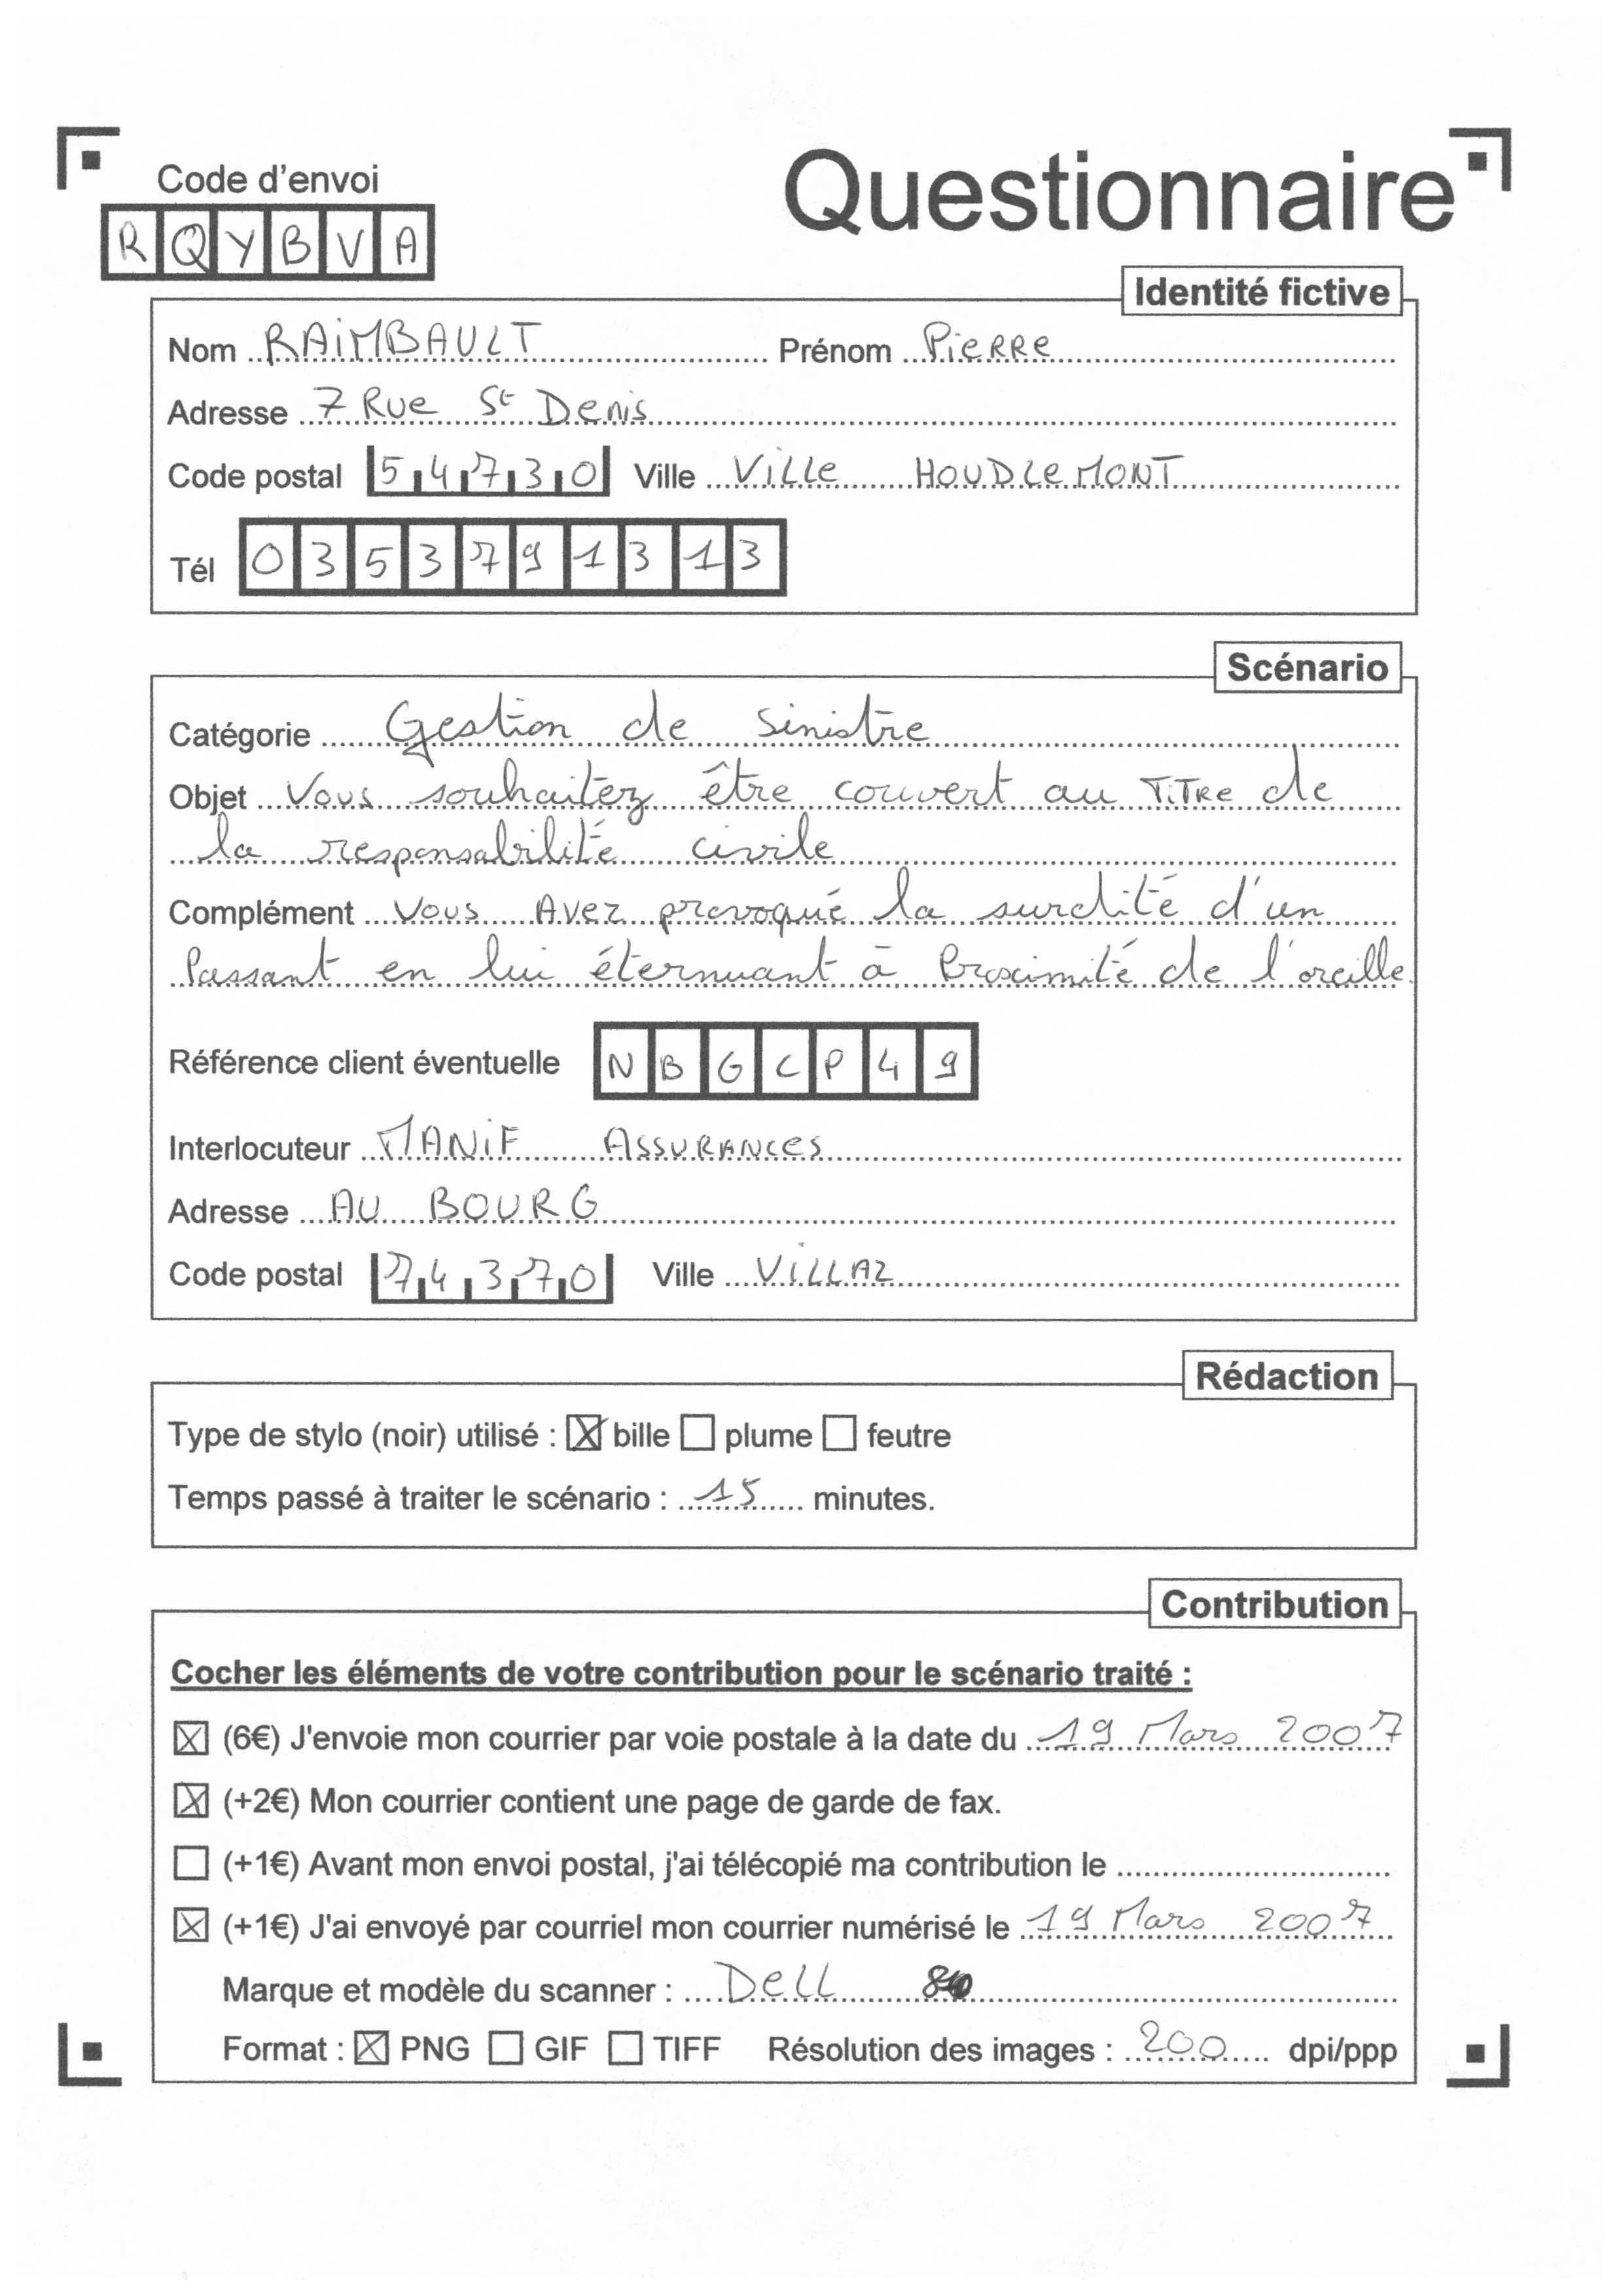 Code d'envoi
Questionnaire
RQYBVA
Identité fictive
Nom RAIMBAULT Prénom PIERRE
Adresse 7 Rue St Denis
Code postal 54730 Ville Ville HOUDLEMONT
Tél 0353791313
Scénario
Catégorie Gestion de sinistre
Objet Vous souhaitez être couvert au TITRE de
la responsabilité civile
Complément Vous Avez provoqué la surdité d'un
Passant en lui éternuant à Proximité de l'oreille.
Référence client éventuelle NBGCP49
Interlocuteur MANIF ASSURANCES
Adresse AU BOURG
Code postal 74370 Ville VILLAZ
Rédaction
Type de stylo (noir) utilisé : ☒ bille ☐ plume ☐ feutre
Temps passé à traiter le scénario : 15 minutes.
Contribution
Cocher les éléments de votre contribution pour le scénario traité :
☒ (6€) J'envoie mon courrier par voie postale à la date du 19 Mars 2007
☒ (+2€) Mon courrier contient une page de garde de fax.
☐ (+1€) Avant mon envoi postal, j'ai télécopié ma contribution le
☒ (+1€) J'ai envoyé par courriel mon courrier numérisé le 19 Mars 2007
Marque et modèle du scanner : Dell
Format : ☒ PNG ☐ GIF ☐ TIFF Résolution des images : 200 dpi/ppp